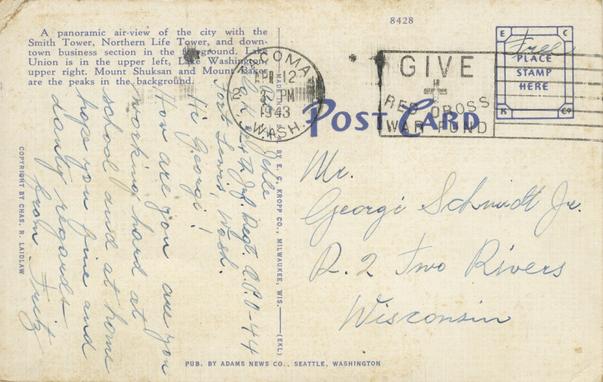 8428
A panoramic air-view of the city with the
Smith Tower, Northern Life Tower, and down-
town business section in the foreground. Lake
Union is in the upper left, Lake Washington,
upper right. Mount Shuksan and Mount Baker
are the peaks in the background.
TACOMA
12
PM
1943
WASH.
GIVE
RED CROSS
WAR FUND
Free
PLACE
STAMP
HERE
POST CARD
Fort Lewis, Wash.
Hi George!
How are you are you
working hard at
school and at home
hope you fine and
danty regards
from Fritz
Mr.
George Schmidt Jr.
R. 2 Two Rivers
Wisconsin
COPYRIGHT BY CHAS. R. LAIDLAW
BY E. C. KROPP CO., MILWAUKEE, WIS.
(EKC)
PUB. BY ADAMS NEWS CO., SEATTLE, WASHINGTON